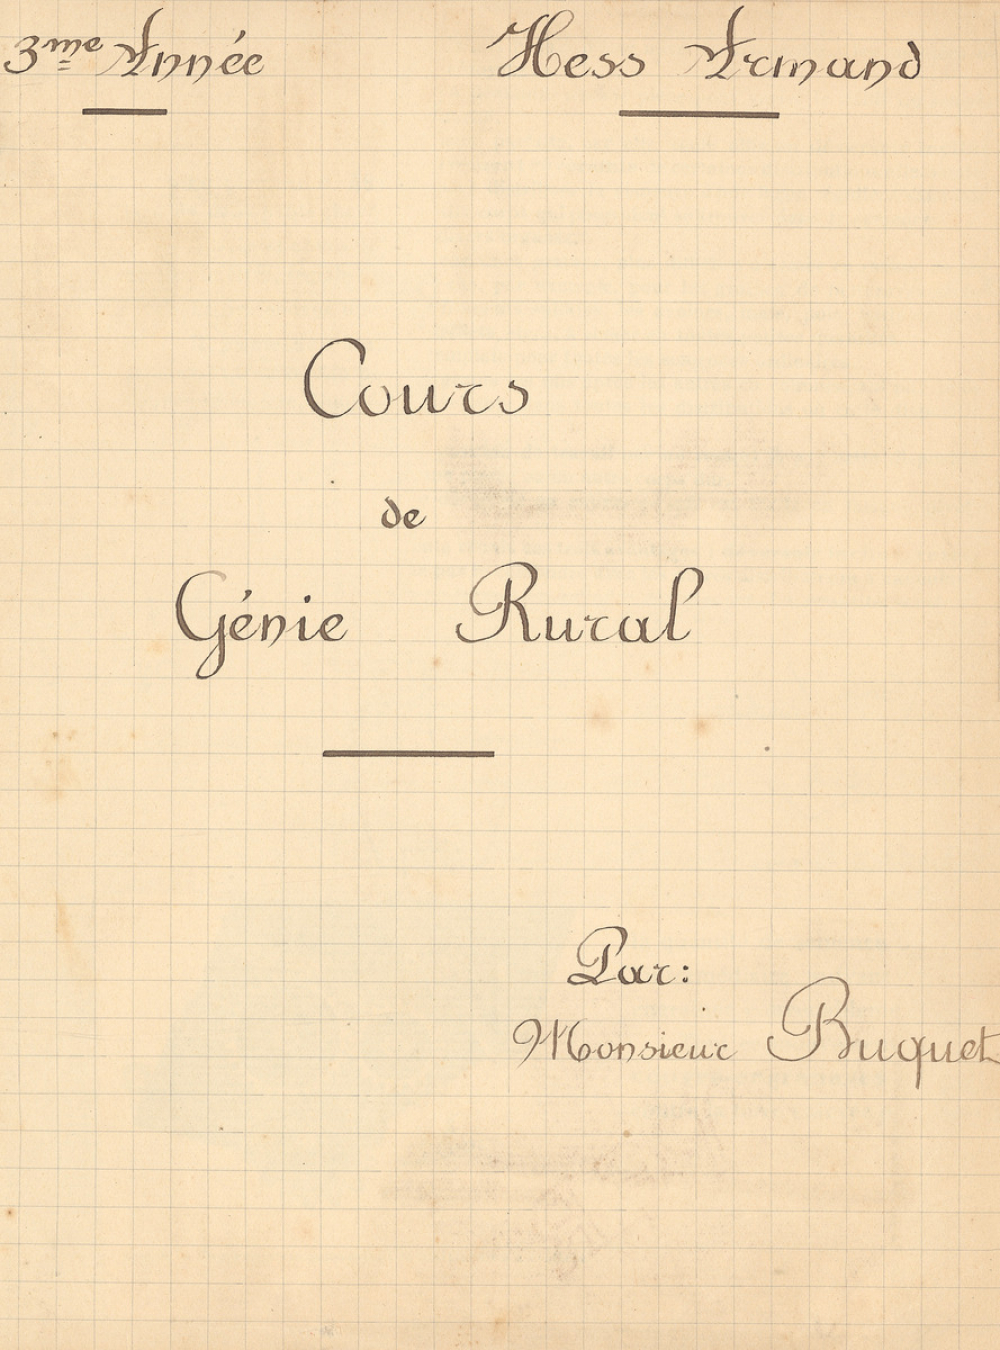 3me Année Hess Armand
Cours
de
Génie Rural
Par:
Monsieur Buquet